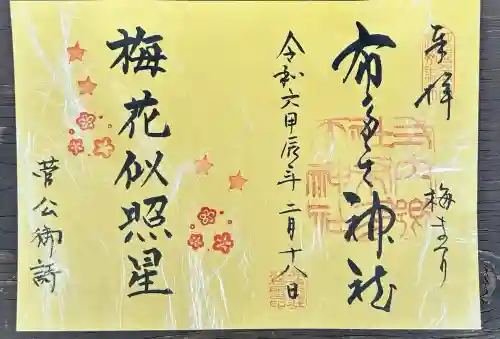 奉拝
梅まつり
布多天神社
令和六甲辰年二月十八日
梅花似照星
菅公御詩